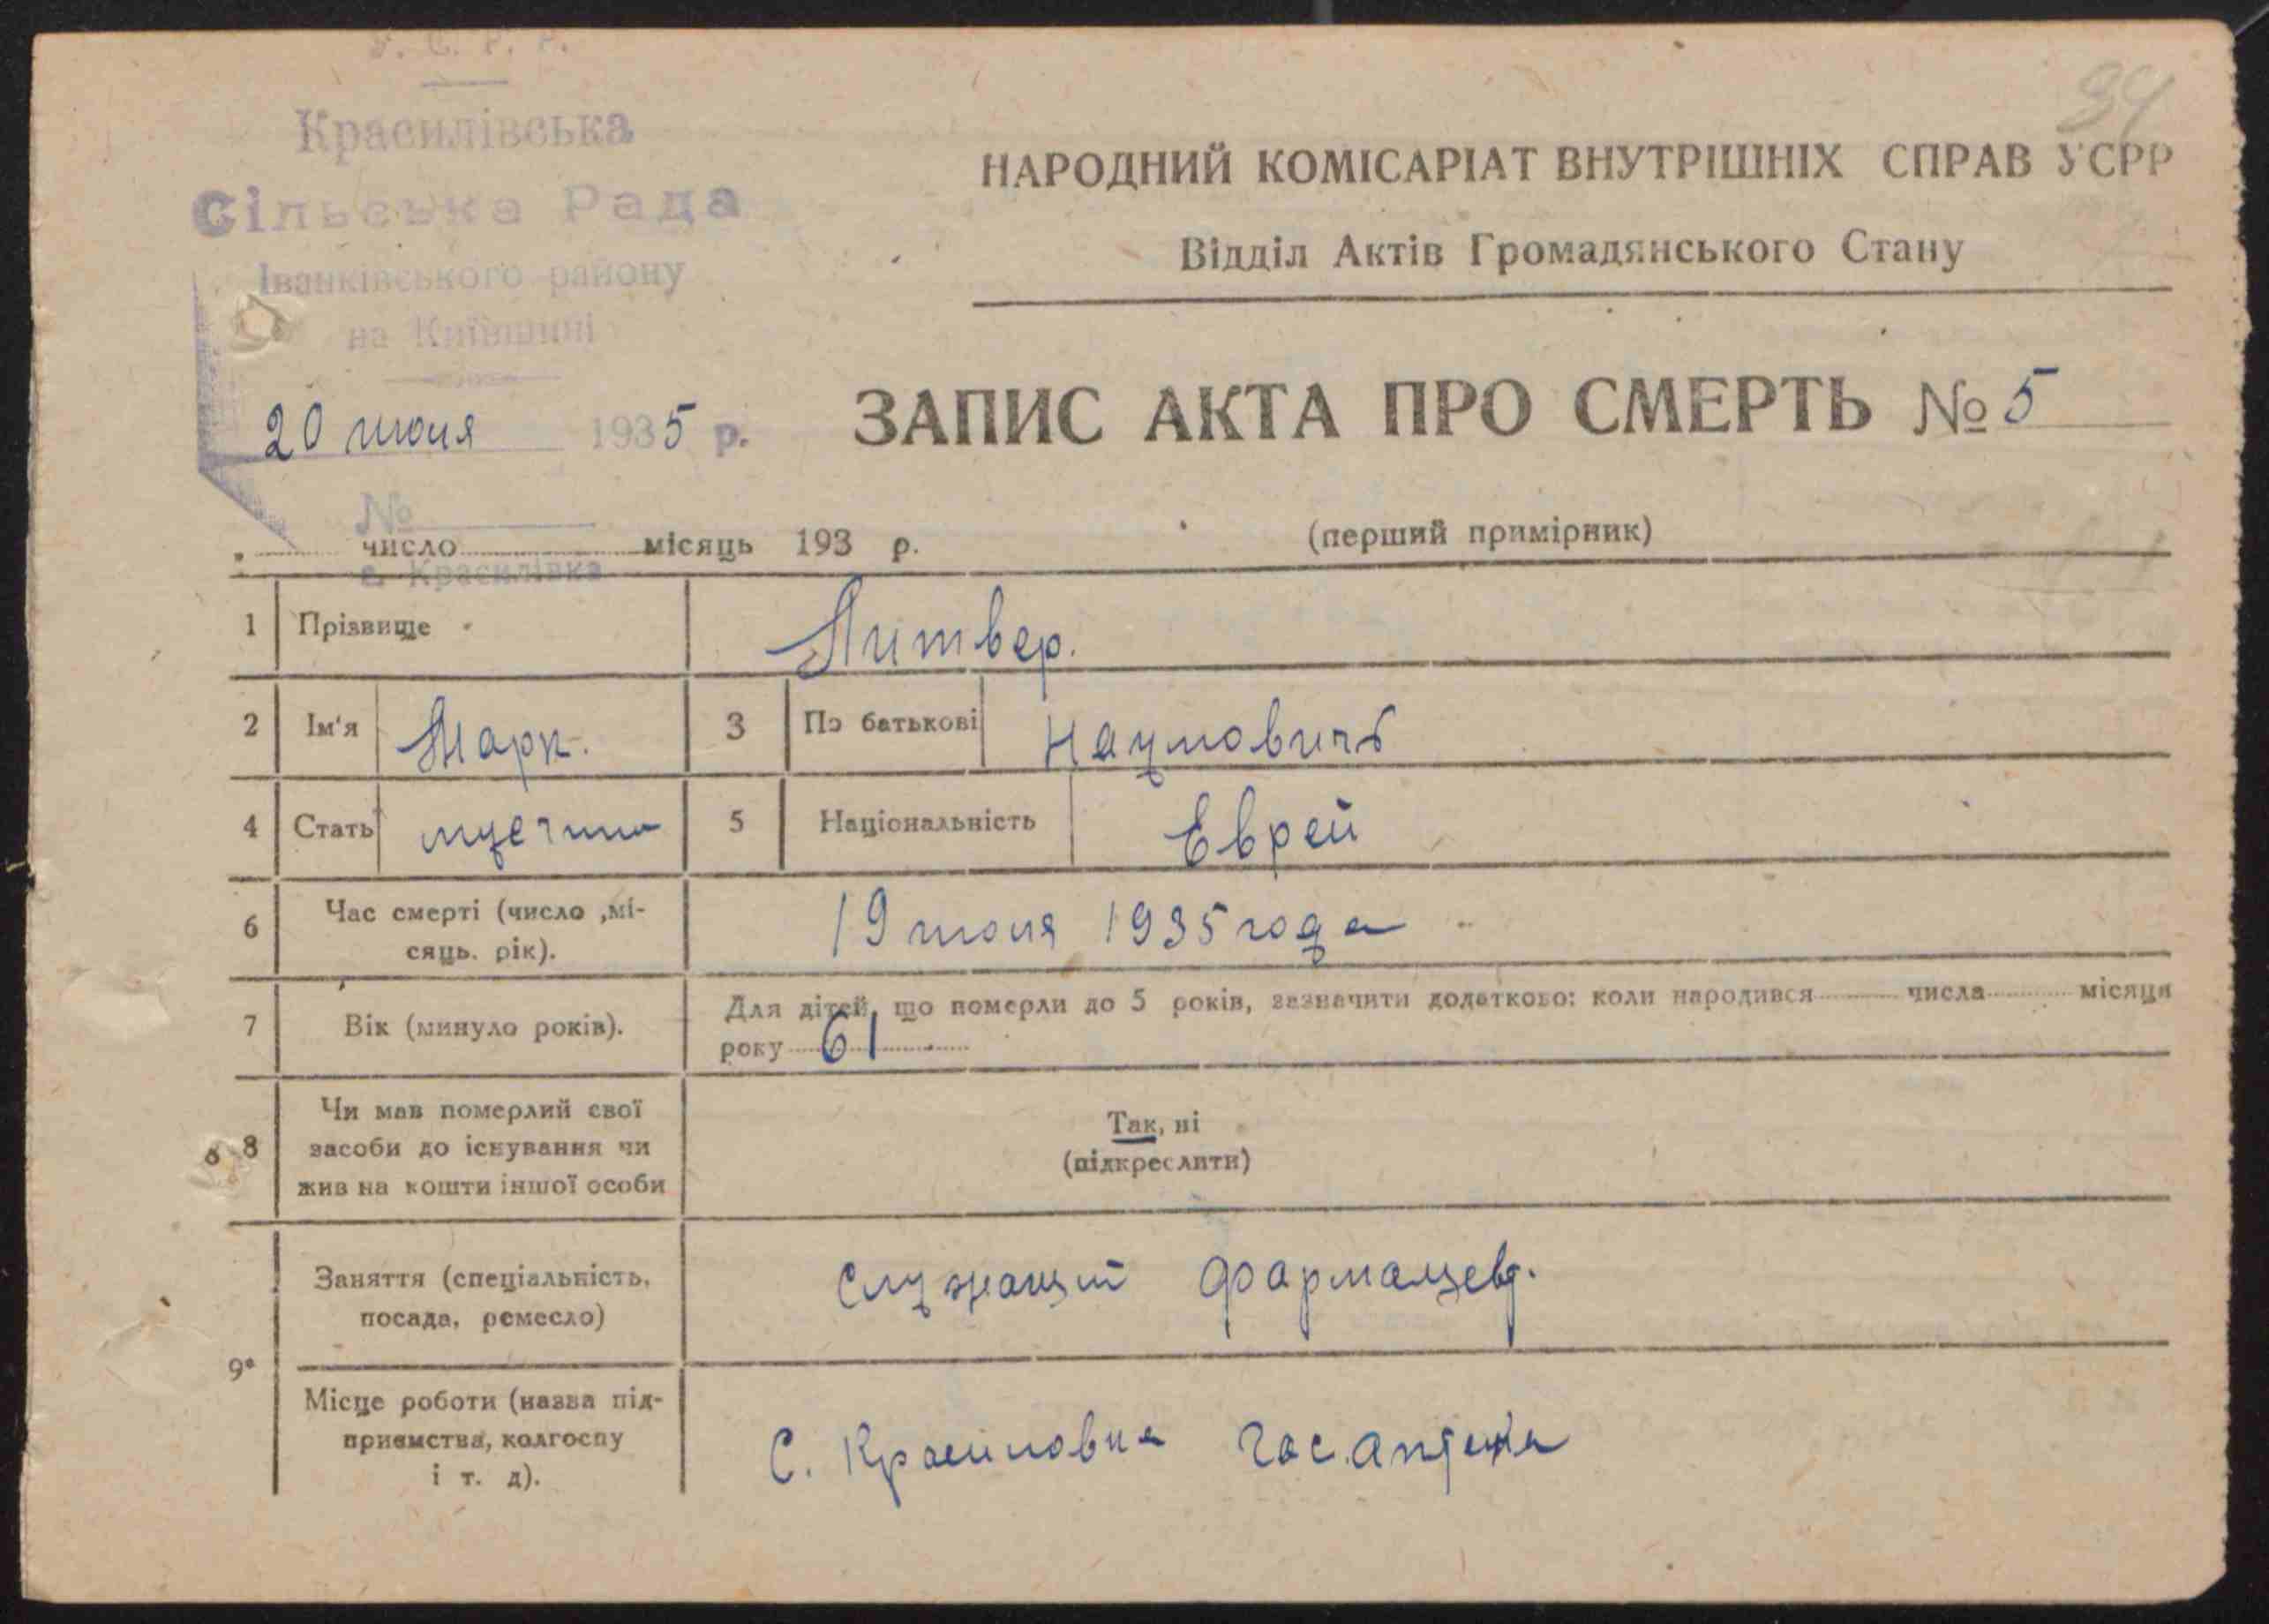 У. С. Р. Р.
Красилівська
Сільська Рада
Іванківського району
на Київщині
20 июля 1935 р.
№
с. Красилівка
34
НАРОДНИЙ КОМІСАРІАТ ВНУТРІШНІХ СПРАВ УСРР
Відділ Актів Громадянського Стану
ЗАПИС АКТА ПРО СМЕРТЬ № 5
число місяць 193 р.
(перший примірник)
1 Прізвище Литвер.
2 Ім'я Марк. 3 По батькові Наумовичъ
4 Стать мусчина 5 Національність Еврей
6 Час смерті (число ,мі-
сяць. рік). 19 июля 1935 года
7 Вік (минуло років). Для дітей, що померли до 5 років, зазначити додатково: коли народився числа місяця
року 61
8 Чи мав померлий свої
засоби до існування чи
жив на кошти іншої особи
Так, ні
(підкреслити)
9 Заняття (спеціальність,
посада, ремесло)
Служащий фармацевт.
Місце роботи (назва під-
приємства, колгоспу
і т. д).
С. Красиловка Гос. аптека